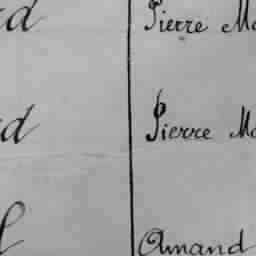 d Pierre Mo
d Pierre Mo
Amand